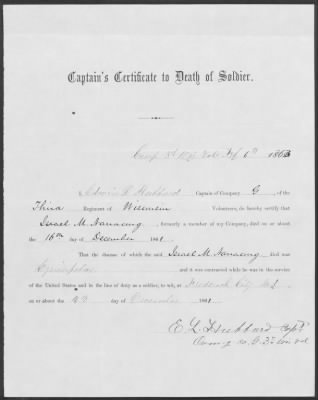 Captain's Certificate to Death of Soldier.
Camp 3d Wis Vols 6th 1863
I, Edwin L. Hubbard Captain of Company G, of the
Third Regiment of Wisconsin Volunteers, do hereby certify that
Israel M. formerly a member of my Company, died on or about
the 16th day of December 1861.
That the disease of which the said Israel M. died was
Erysipelas and it was contracted while he was in the service
of the United States and in the line of duty as a soldier, to wit, at Frederick City Md.
on or about the day of December 1861.
E. L. Hubbard Capt
Co. G 3d Wis Vol